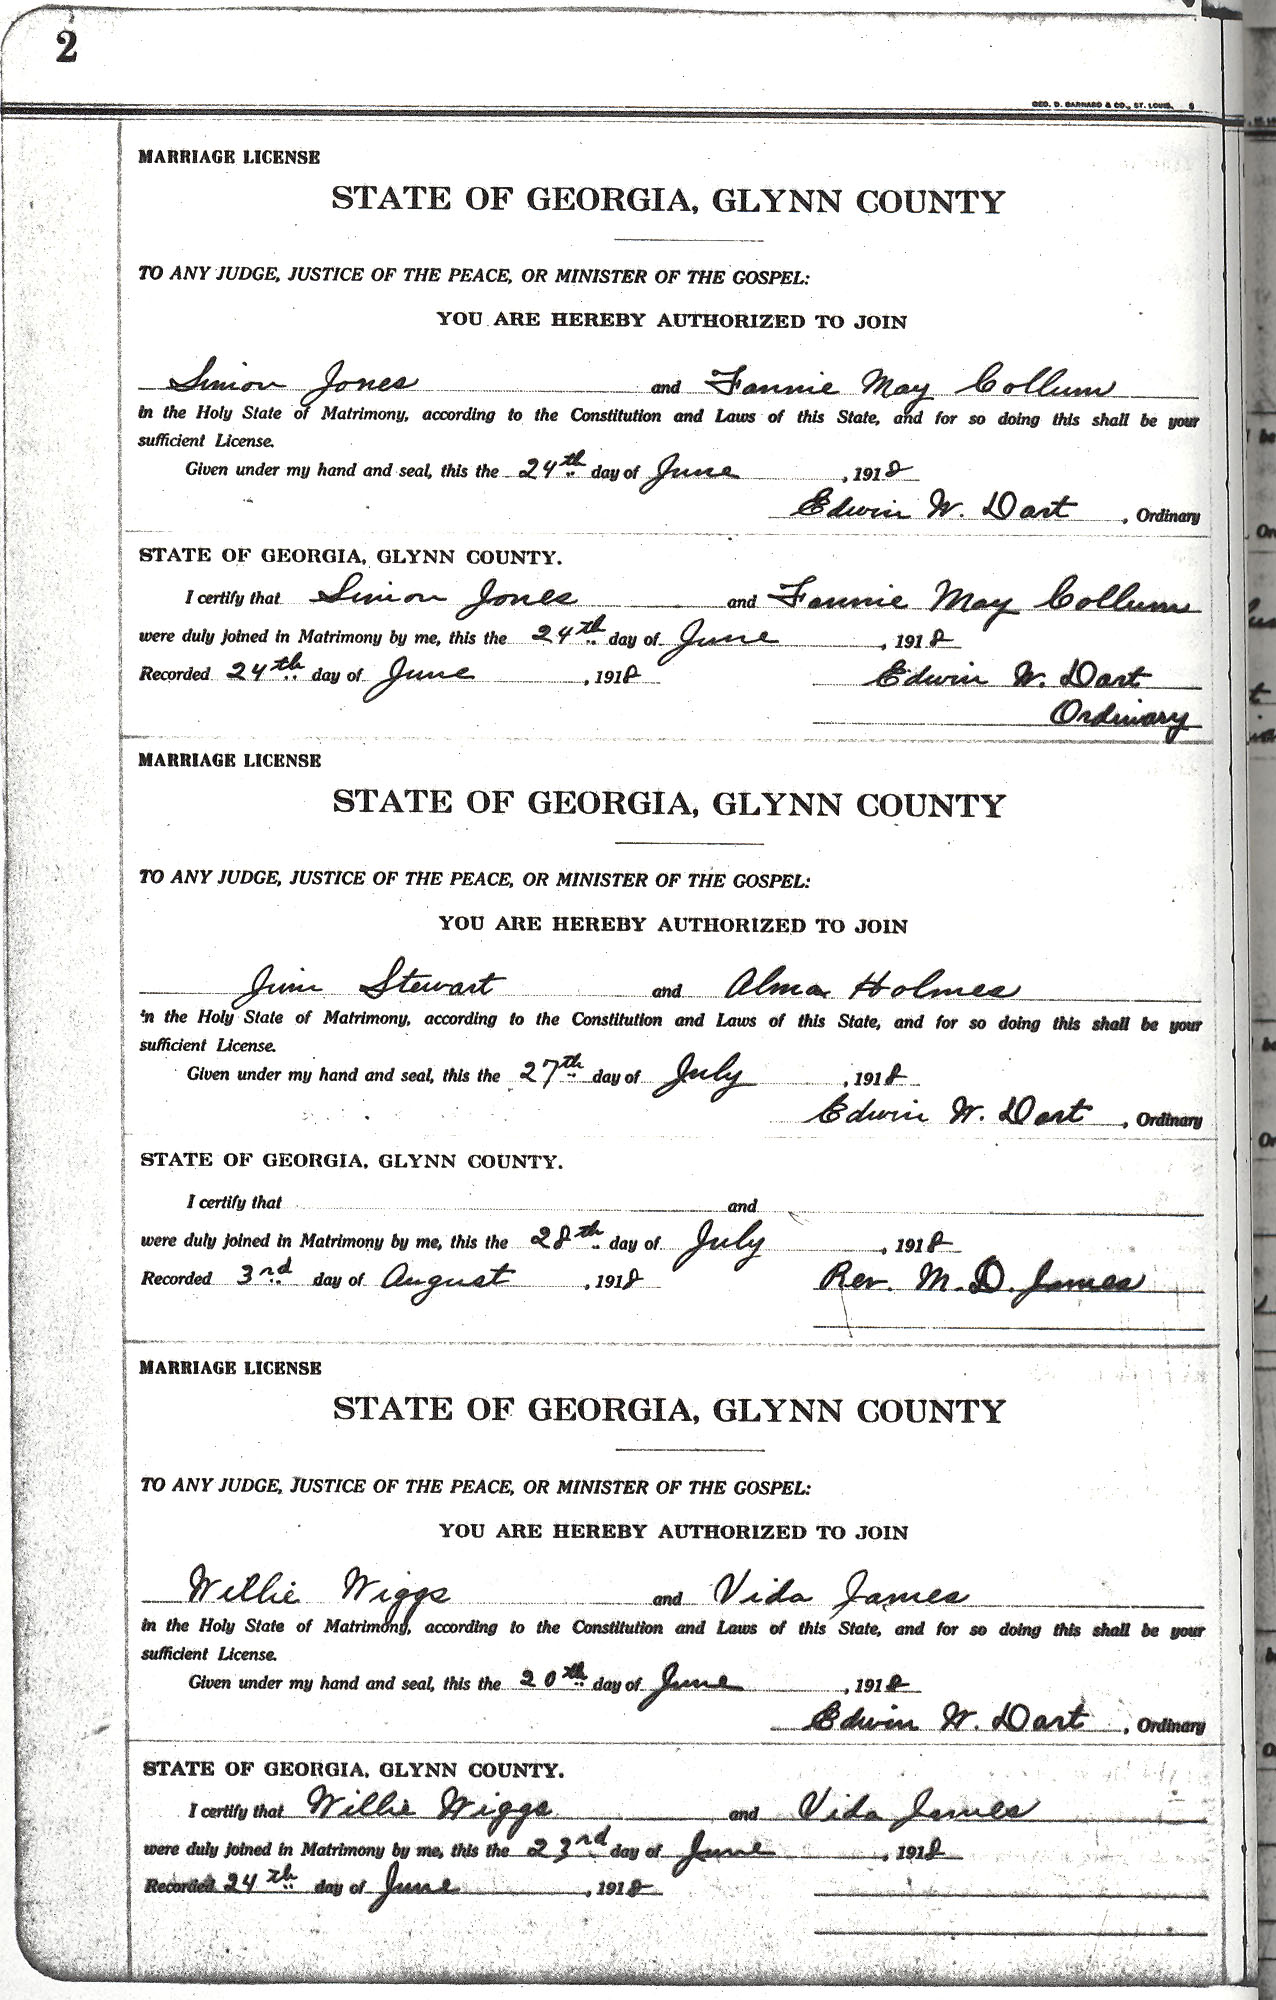 2
GEO. D. BARNARD & CO., ST. LOUIS.
MARRIAGE LICENSE
STATE OF GEORGIA, GLYNN COUNTY
TO ANY JUDGE, JUSTICE OF THE PEACE, OR MINISTER OF THE GOSPEL:
YOU ARE HEREBY AUTHORIZED TO JOIN
Simon Jones and Fannie May Collum
in the Holy State of Matrimony, according to the Constitution and Laws of this State, and for so doing this shall be your
sufficient License.
Given under my hand and seal, this the 24th day of June, 1918
Edwin W. Dart, Ordinary
STATE OF GEORGIA, GLYNN COUNTY.
I certify that Simon Jones and Fannie May Collum
were duly joined in Matrimony by me, this the 24th day of June, 1918
Recorded 24th day of June, 1918 Edwin W. Dart
Ordinary
MARRIAGE LICENSE
STATE OF GEORGIA, GLYNN COUNTY
TO ANY JUDGE, JUSTICE OF THE PEACE, OR MINISTER OF THE GOSPEL:
YOU ARE HEREBY AUTHORIZED TO JOIN
Jim Stewart and Alma Holmes
in the Holy State of Matrimony, according to the Constitution and Laws of this State, and for so doing this shall be your
sufficient License.
Given under my hand and seal, this the 27th day of July, 1918
Edwin W. Dart, Ordinary
STATE OF GEORGIA, GLYNN COUNTY.
I certify that and
were duly joined in Matrimony by me, this the 28th day of July, 1918
Recorded 3rd day of August, 1918 Rev. M. D. James
MARRIAGE LICENSE
STATE OF GEORGIA, GLYNN COUNTY
TO ANY JUDGE, JUSTICE OF THE PEACE, OR MINISTER OF THE GOSPEL:
YOU ARE HEREBY AUTHORIZED TO JOIN
Willie Wiggs and Vida James
in the Holy State of Matrimony, according to the Constitution and Laws of this State, and for so doing this shall be your
sufficient License.
Given under my hand and seal, this the 20th day of June, 1918
Edwin W. Dart, Ordinary
STATE OF GEORGIA, GLYNN COUNTY.
I certify that Willie Wiggs and Vida James
were duly joined in Matrimony by me, this the 23rd day of June, 1918
Recorded 24th day of June, 1918